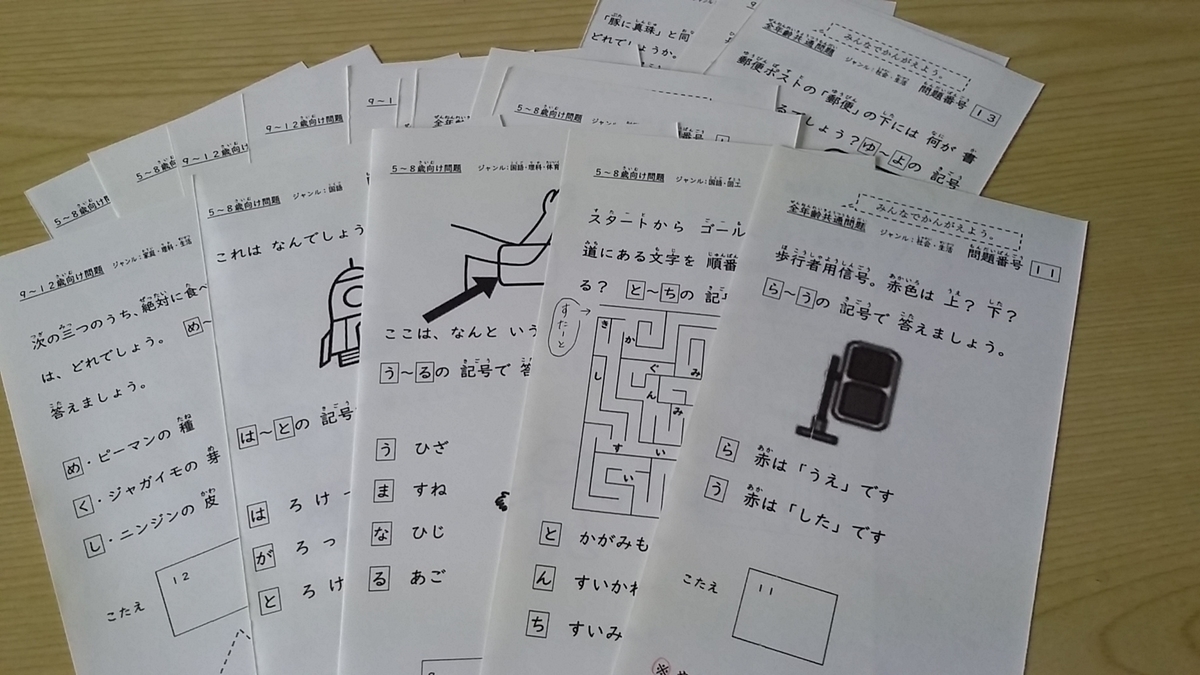 「豚に真珠」と同
どれでしょうか。
みんなでかんがえよう。
全年齢共通問題
ジャンル：社会・生活
問題番号 13
郵便ポストの「郵便」の下には 何が 書
しょう？ゆ～よの 記号
9～12歳向け問題
5～8歳向け問題
9～12歳向け問題
5～8歳
5～8歳向け問題
9～12歳向け問題
ジャンル：家庭・理科・生活
次の三つのうち、絶対に食べ
は、どれでしょう。 め～
答えましょう。
め・ピーマンの 種
く・ジャガイモの 芽
し・ニンジンの 皮
こたえ
12
5～8歳向け問題
ジャンル：国語
これは なんでしょう
は～との 記号
は ろけ
が ろっ
と ろけ
5～8歳向け問題
ジャンル：国語・理科・体育
ここは、なんと いう
う～るの 記号で 答
う ひざ
ま すね
な ひじ
る あご
5～8歳向け問題
ジャンル：国語・図工
スタートから ゴール
道にある文字を 順番
る？ と～ちの 記
すたーと
き
か
し
ぐ
み
ん
み
す
い
い
と かがみも
ん すいかわ
ち すいみ
みんなでかんがえよう。
全年齢共通問題
ジャンル：社会・生活
問題番号 11
歩行者用信号。赤色は 上？ 下？
ら～うの 記号で 答えましょう。
ら 赤は「うえ」です
う 赤は「した」です
こたえ
11
※